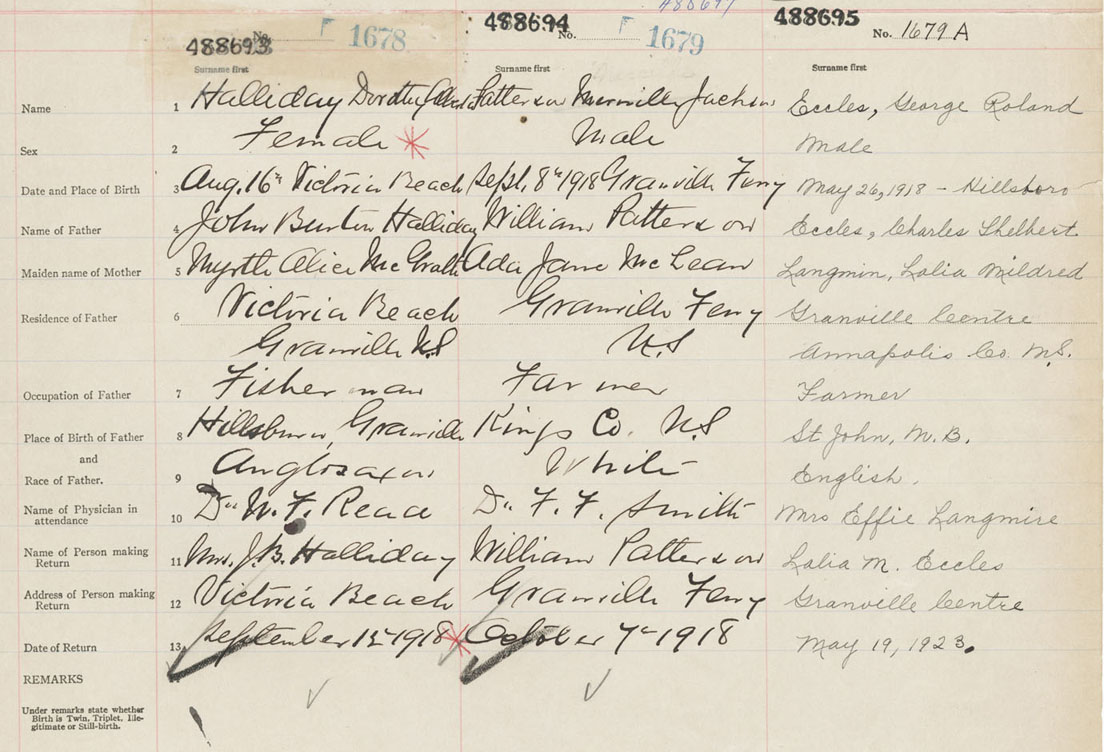 488693 No. F 1678
488694 No. F 1679
488695 No. 1679 A
Surname first Surname first Surname first
Name 1 Halliday Dorothy Patterson Merville Jackson Eccles, George Roland
Sex 2 Female Male Male
Date and Place of Birth 3 Aug. 16th Victoria Beach Sept. 8th 1918 Granville Ferry May 26, 1918 - Hillsboro
Name of Father 4 John Burton Halliday William Patterson Eccles, Charles Shelbert
Maiden name of Mother 5 Myrtle Alice McGrath Ada Jane McLean Langmin, Lalia Mildred
Residence of Father 6 Victoria Beach Granville Ferry Granville Centre
Granville N.S N.S Annapolis Co. N.S.
Occupation of Father 7 Fisherman Farmer Farmer
Place of Birth of Father 8 Hillsburn, Granville Kings Co. N.S St John, N.B.
and
Race of Father. 9 Anglosaxon White English.
Name of Physician in
attendance 10 Dr W. F. Read Dr. F. F. Smith Mrs Effie Langmire
Name of Person making
Return 11 Mrs. J. B. Halliday William Patterson Lalia M. Eccles
Address of Person making
Return 12 Victoria Beach Granville Ferry Granville Centre
Date of Return 13 September 1918 October 7th 1918 May 19, 1923.
REMARKS
Under remarks state whether
Birth is Twin, Triplet, Ille-
gitimate or Still-birth.